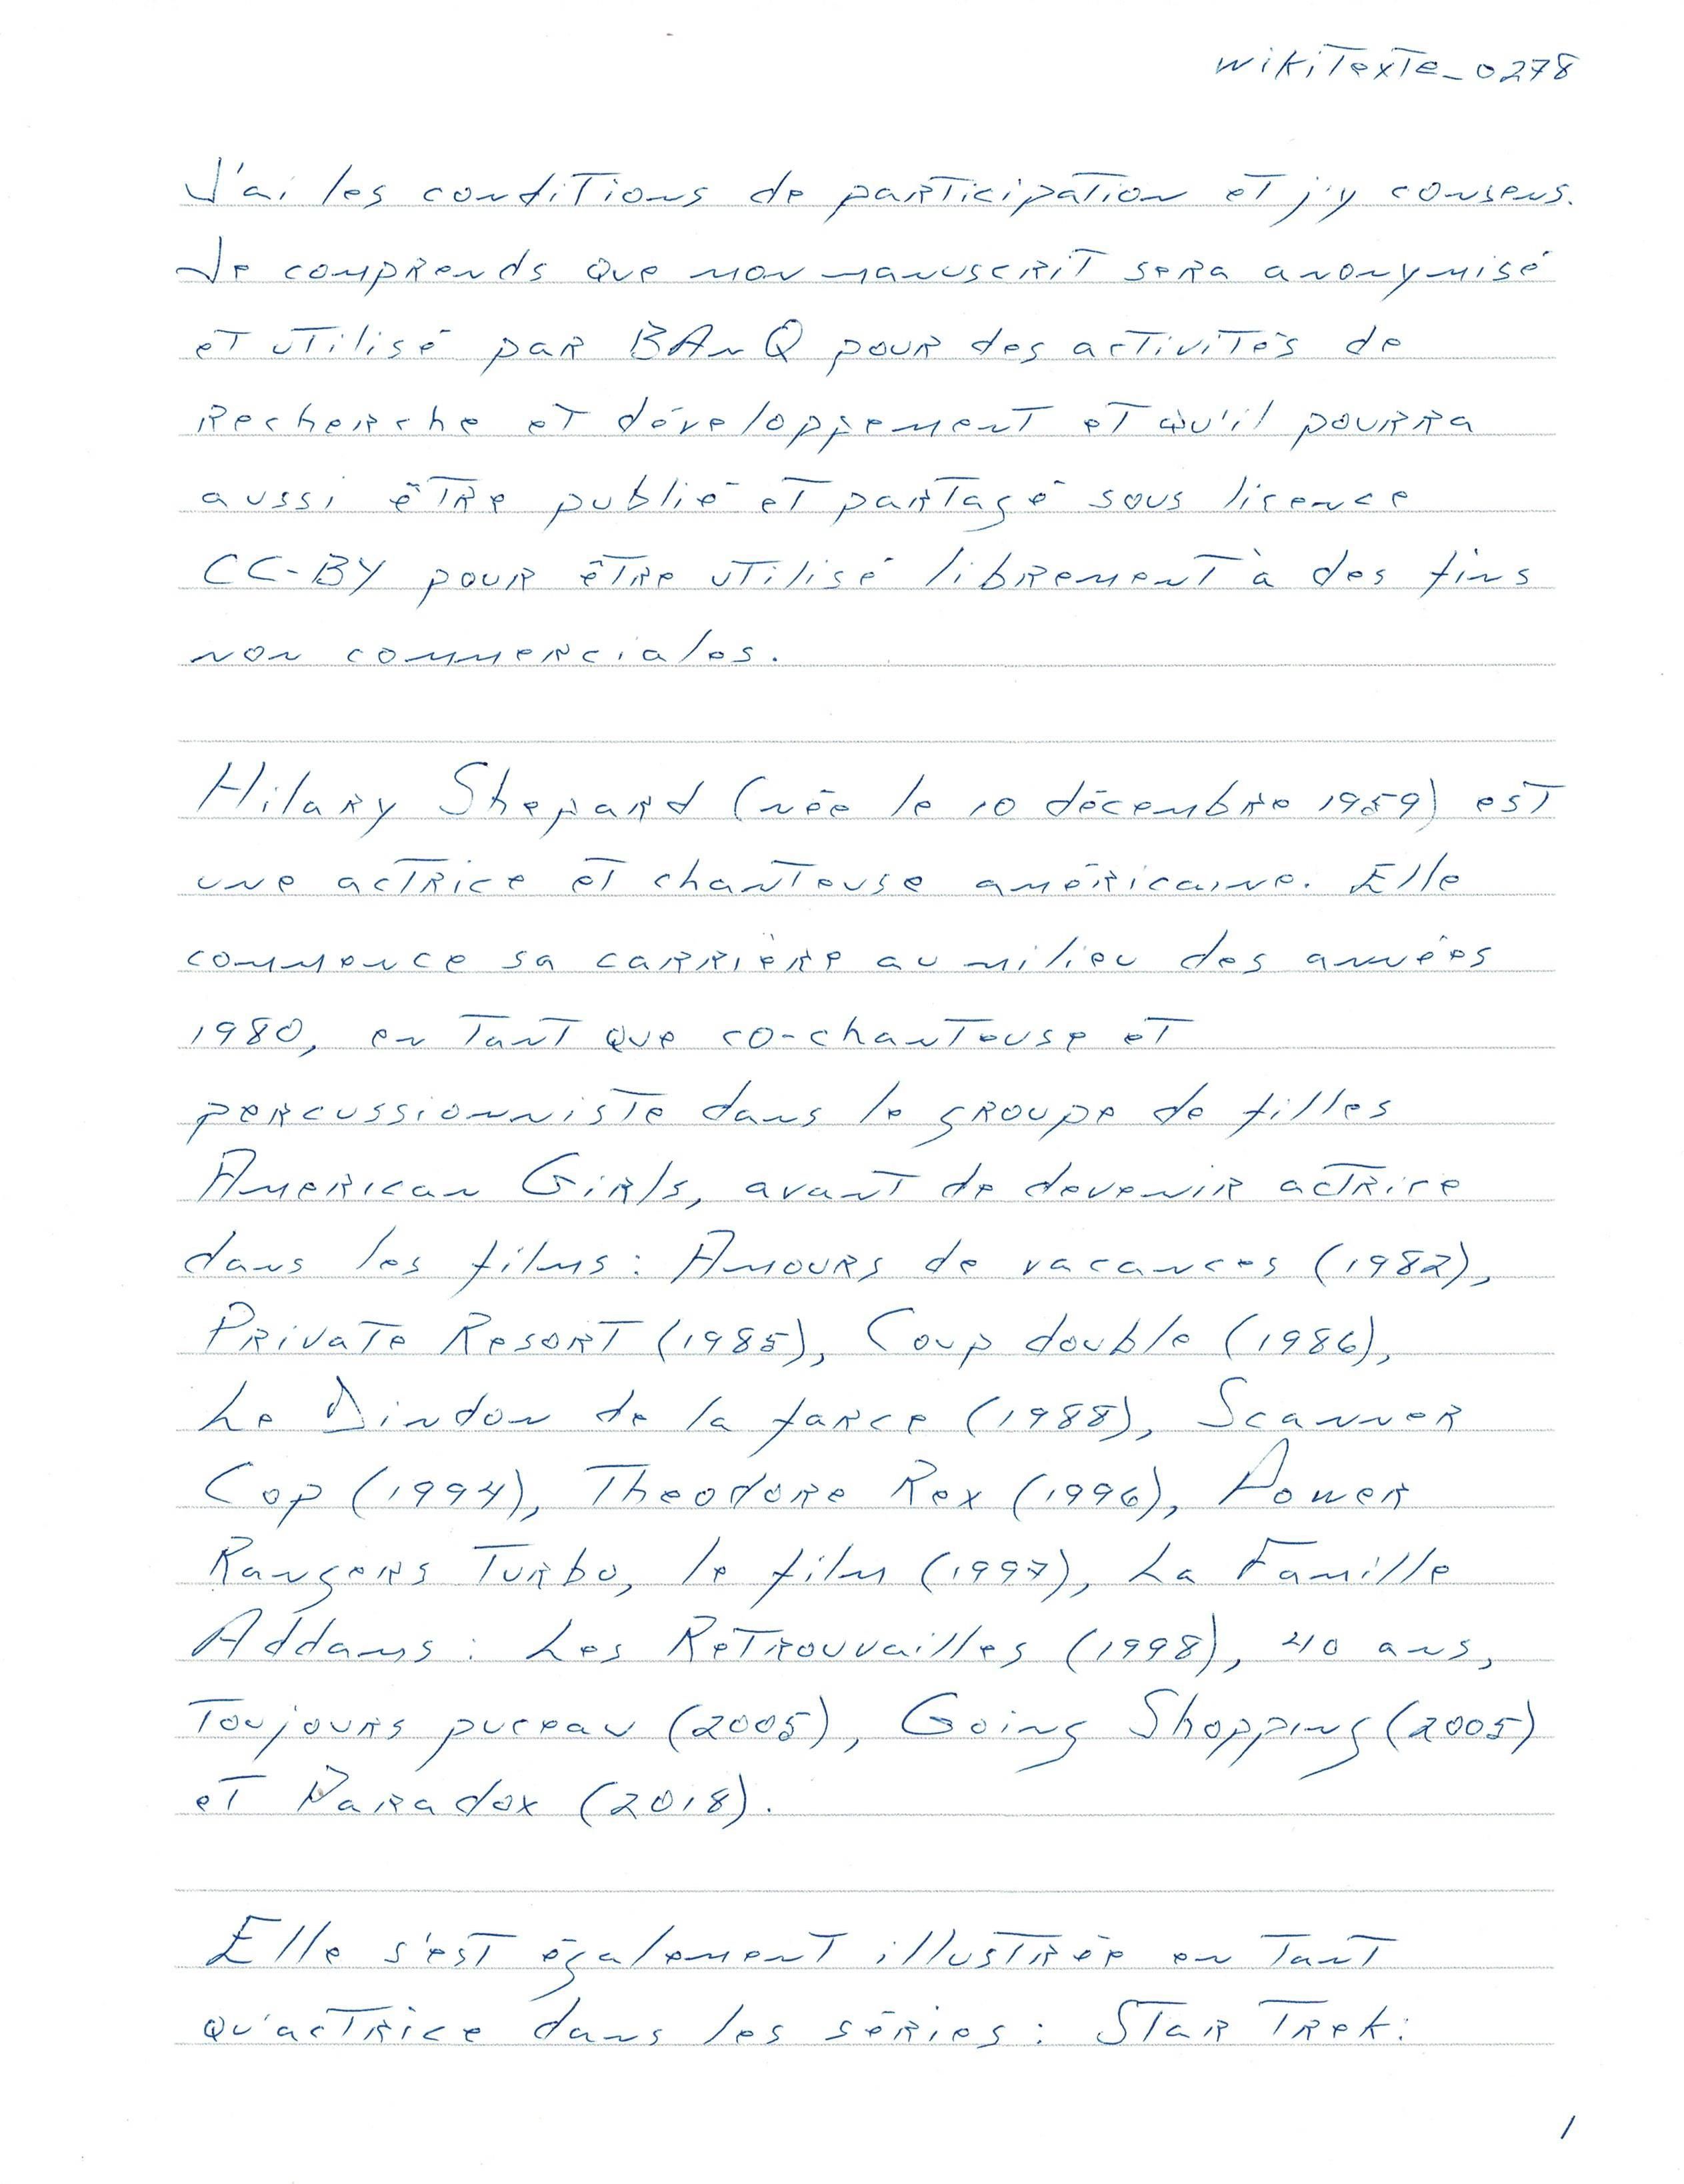 wikiTexte_0278
J'ai les conditions de participation et j'y consens.
Je comprends que mon manuscrit sera anonymisé
et utilisé par BAnQ pour des activités de
Recherche et développement et qu'il pourra
aussi être publié et partagé sous licence
CC-BY pour être utilisé librement à des fins
non commerciales.
Hilary Shepard (née le 10 décembre 1959) est
une actrice et chanteuse américaine. Elle
commence sa carrière au milieu des années
1980, en tant que co-chanteuse et
percussionniste dans le groupe de filles
American Girls, avant de devenir actrice
dans les films : Amours de vacances (1982),
Private Resort (1985), Coup double (1986),
Le Dindon de la farce (1988), Scanner
Cop (1994), Theodore Rex (1996), Power
Rangers Turbo, le film (1997), La Famille
Addams : Les Retrouvailles (1998), 40 ans,
Toujours puceau (2005), Going Shopping (2005)
et Paradox (2018).
Elle s'est également illustrée en tant
qu'actrice dans les séries : Star Trek:
1